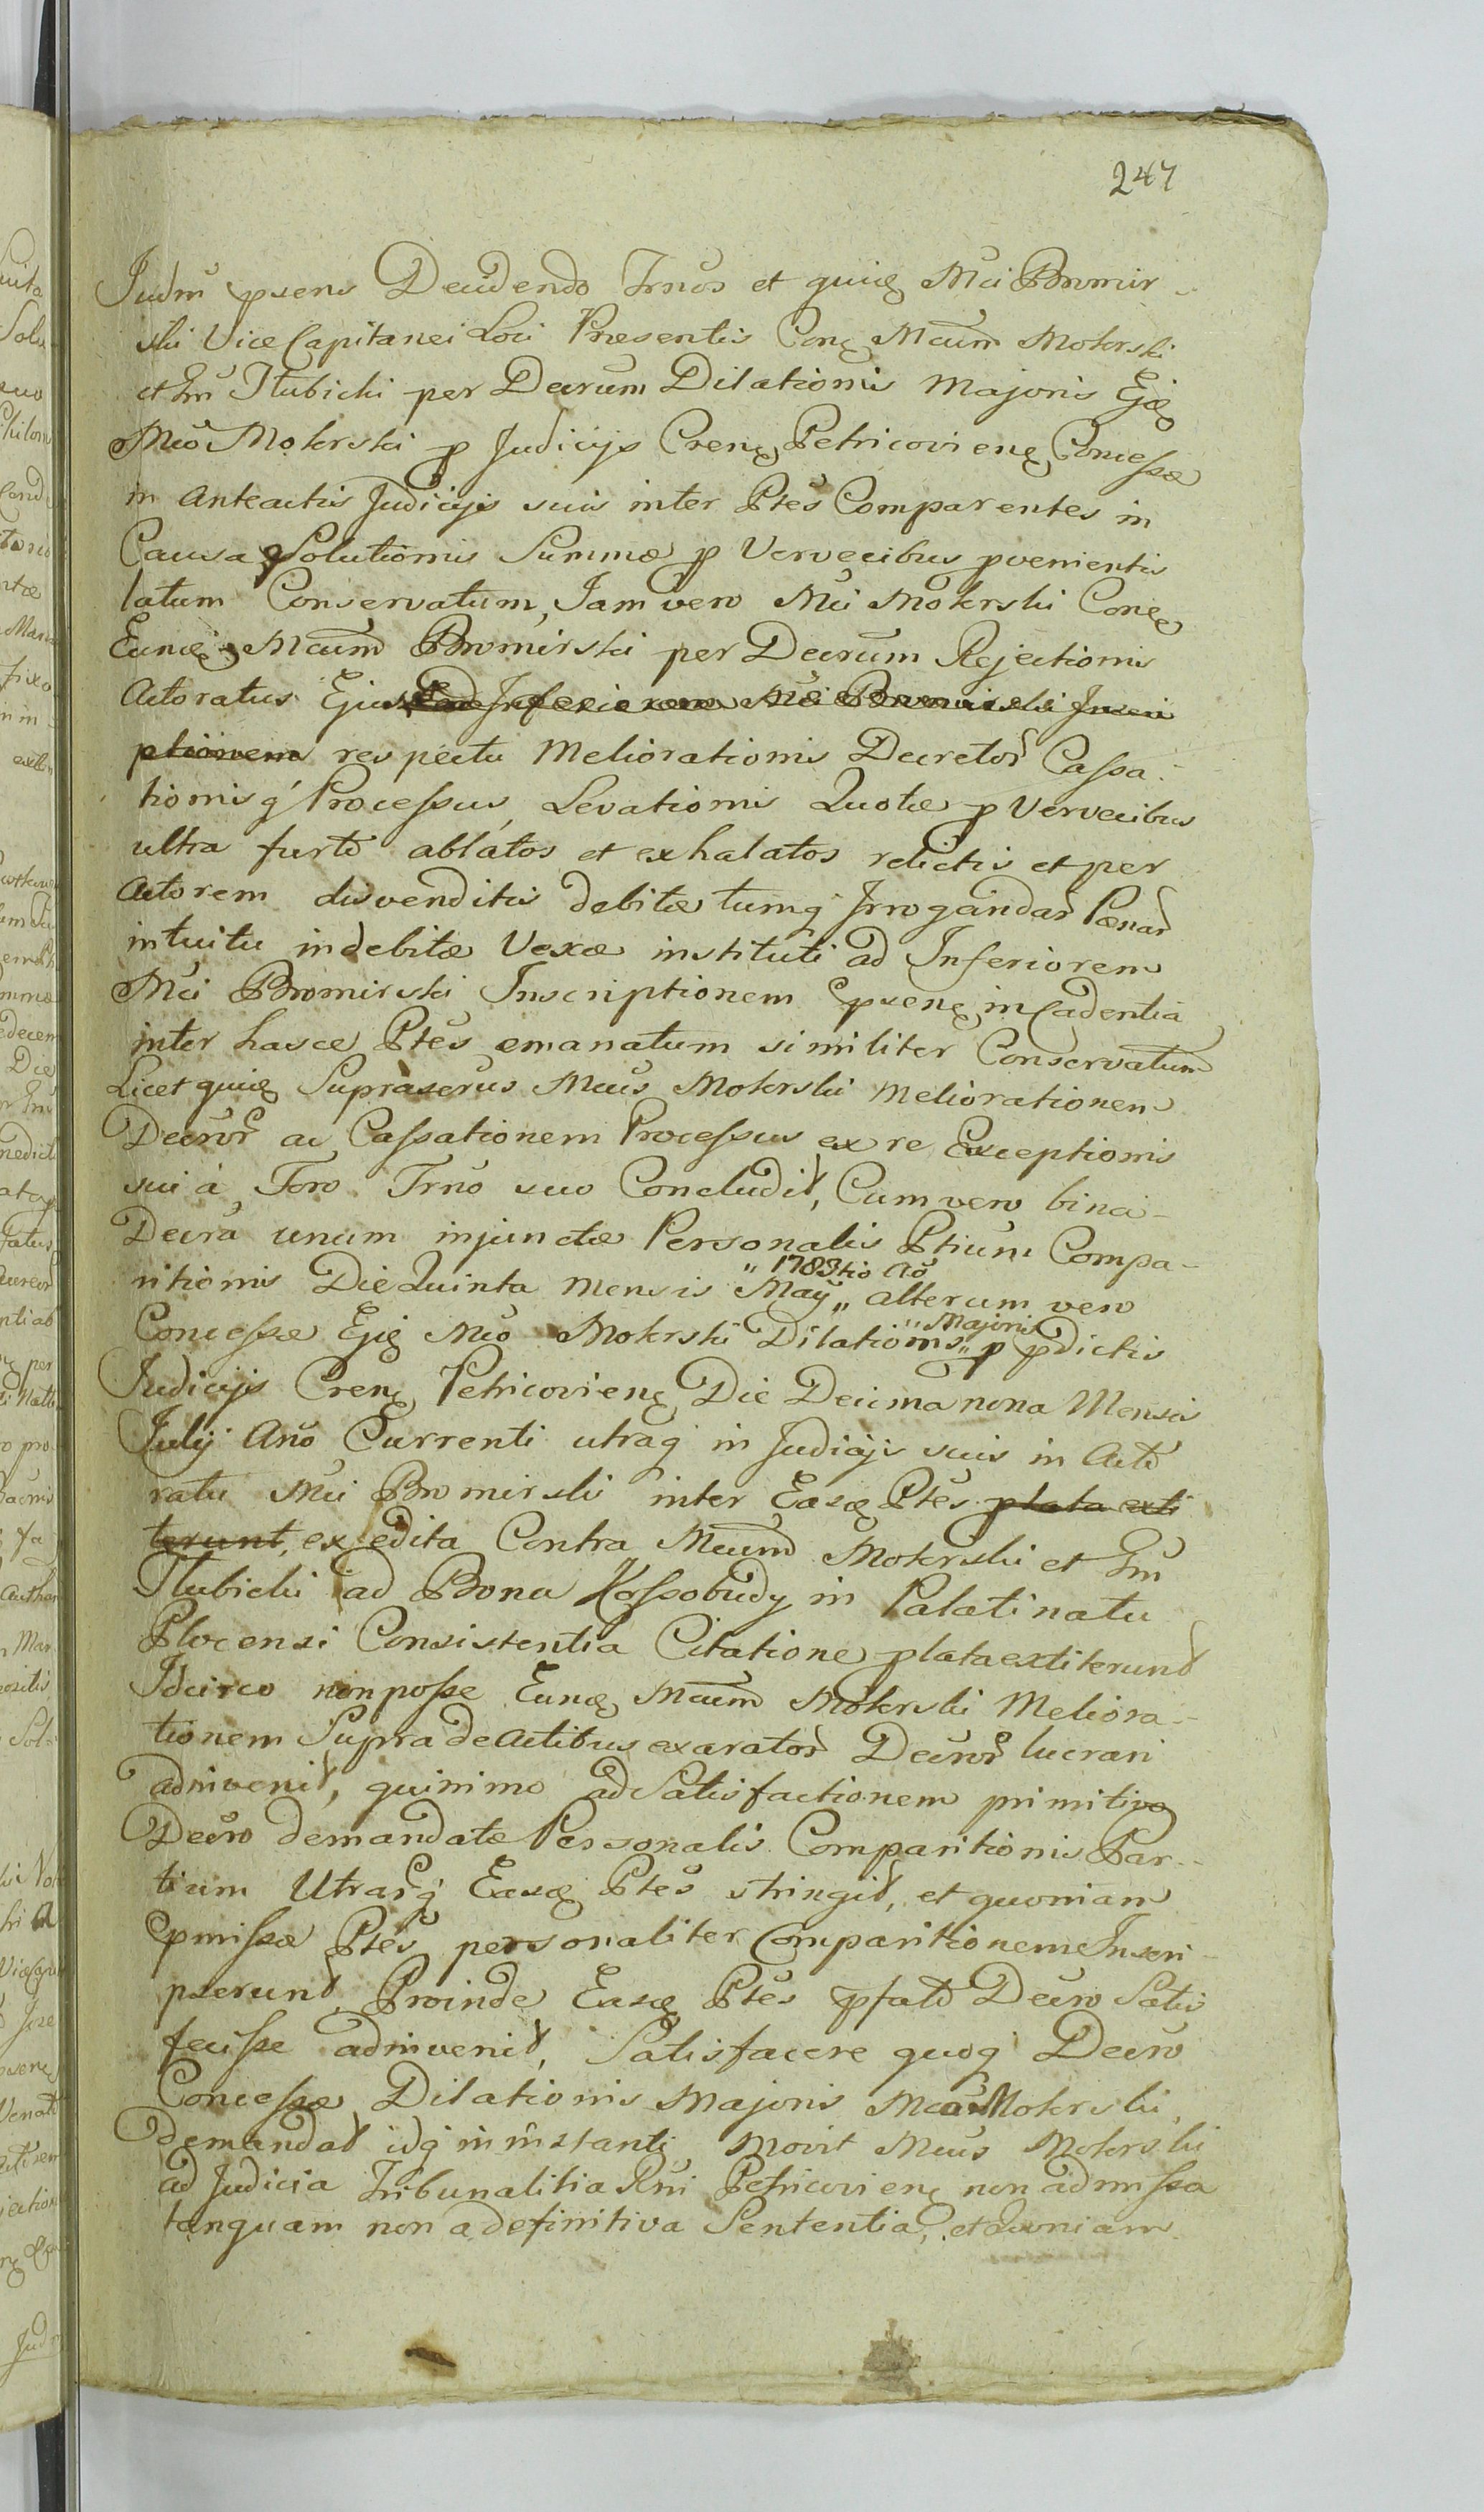 247
Judm̃ pxens Decidendo Trños et quiđ Mci Bromir-
ski Vice Capitanei Loci Præsentis Conđ Mcum Mokrski
et Im̃ Hubicki per Decrum Dilationis Majoris Ejđ
Mco Mokrski p Judicijs Crenđ Petricovienđ Concessæ
in anteactis Judicijs suis inter Ptes Comparentes in
Causa Solutionis Summæ p Vervecibus pvenientis
latum Conservatum, Jam vero Mci Mokrski Conđ
Eunđ Mcum Bromirski per Decrum Rejectionis
Actoratus Ejus ad Inferiorem Mci Bromirski Inscri
ptionem respectu Meliorationis Decretor Cassa-
tionisq Processus, Levationis Quotæ p Vervecibus
ultra furto ablatos et exhalatos relictis et per
Actorem disvenditis debitæ tumq Irrogandar Pænar
intuitu indebitæ Vexæ instituti ad Inferiorem
Mci Bromirski Inscriptionem pxenđ in Cadentia
inter hasce Ptes emanatum similiter Conservatum
Licet quiđ Supraserus Mcus Mokrski Meliorationem
Decror ac Cassationem Processus ex re Exceptionis
sui à Foro Trño suo Concludit, Cum vero bina
Decra unum injunctæ Personalis Ptium Compa-
ritionis Die Quinta Mensis May „ alterum vero
„ 1783tio Aõ
Concessæ Ejđ Mco Mokrski Dilationis „ p pdictis
„ Majoris
Judicijs Crenđ Petricovienđ Die Decima nona Mensis
July Año Currenti utraq in Judicijs suis in Acto
ratu Mci Bromirski inter Easđ Ptes plata exti
terunt, ex edita Contra Mcum Mokrski et Im̃
Hubicki ad Bona Kossobudy in Palatinatu
Plocensi Consistentia Citatione plata extiterunt
Idcirco non posse Eunđ Mcum Mokrski Meliora-
tionem Supra de Actibus exarator Decror lucrari
adinvenit, quinimo ad Satisfactionem primitivo
Decro demandatæ Personalis Comparitionis Par-
tium Utrasq Easđ Ptes stringit, et quoniam
pmissæ Ptes personaliter Comparitionem Inscri-
pserunt Proinde Easđ Ptes pfato Decro Satis
fecisse adinvenit, Satisfacere quoq Decro
Concessæ Dilationis Majoris Mcus Mokrski
demandat idq in instanti Movit Mcus Mokrski
ad Judicia Tribunalitia Rni Petricovienđ non admissa
tanquam non a definitiva Sententia, et Quoniam